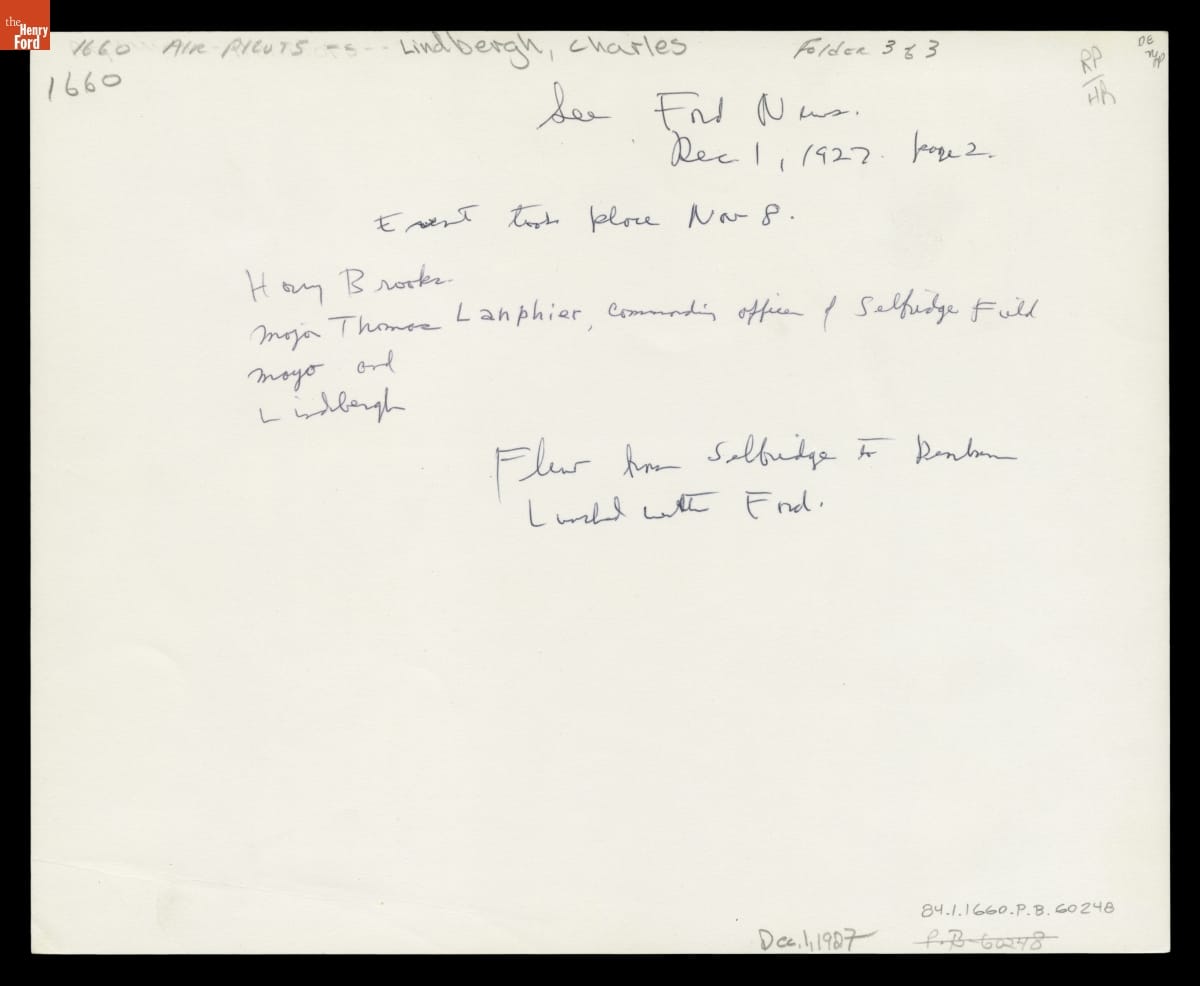 the
Henry
Ford
1660 AIR PILOTS - Lindbergh, Charles Folder 3 of 3
1660
RP
HR
See Ford News.
Dec 1, 1927. page 2.
Event took place Nov 8.
Harry Brooks
Major Thomas Lanphier, commanding officer of Selfridge Field
Mayo and
Lindbergh
Flew from Selfridge to Dearborn
Lunched with Ford.
84.1.1660.P.B.60248
Dec. 1, 1927 P.B. 60248